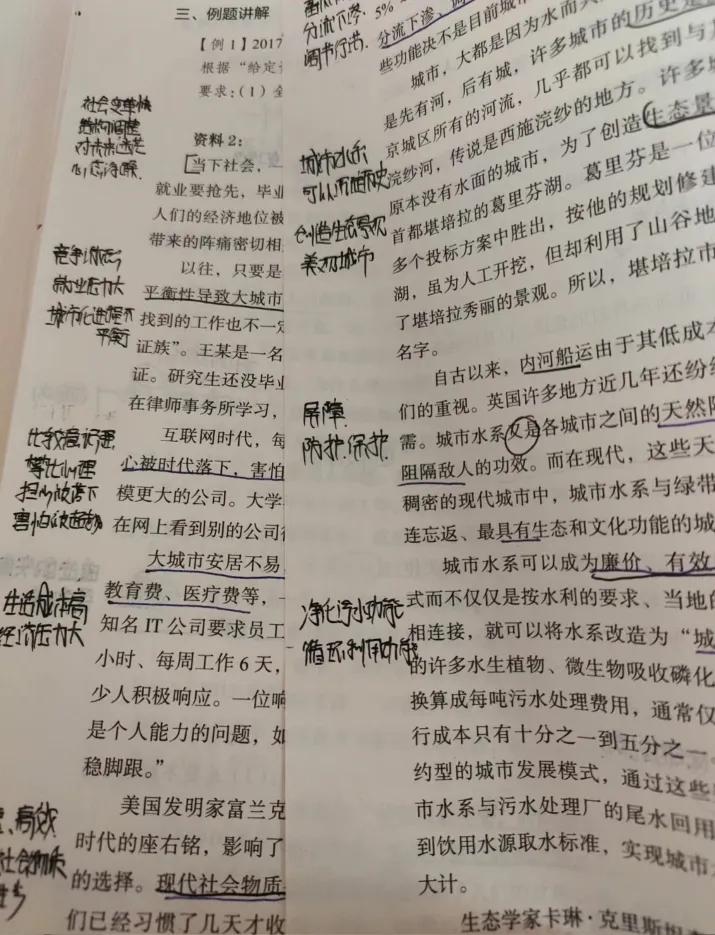 三、例题讲解
【例 1】2017
根据“给定
要求：（1）全
社会变革快
结构调整
对未来迷茫
心态浮躁
资料 2：
当下社会，
就业要抢先，毕业
人们的经济地位被
带来的阵痛密切相
以往，只要是
竞争激烈
就业压力大
城市化进程不
平衡
平衡性导致大城市
找到的工作也不一定
证族”。王某是一名
证。研究生还没毕业
在律师事务所学习，
互联网时代，每
比较意识强
攀比心理
担心被落下
害怕被超越
心被时代落下，害怕
模更大的公司。大学
在网上看到别的公司待
大城市安居不易，
生活成本高
经济压力大
教育费、医疗费等，一
知名 IT 公司要求员工
小时、每周工作 6 天，
少人积极响应。一位响
是个人能力的问题，如
稳脚跟。”
美国发明家富兰克
高效
社会物质
时代的座右铭，影响了
的选择。现代社会物质
们已经习惯了几天才收
分流下渗
调节行洪.
5%
分流下渗、调
些功能决不是目前城市
城市，大都是因为水而兴
是先有河，后有城，许多城市的历史是
京城区所有的河流，几乎都可以找到与
浣纱河，传说是西施浣纱的地方。许多城
城市水系
可以历出历史
创造生态景观
美丽城市
原本没有水面的城市，为了创造生态景
首都堪培拉的葛里芬湖。葛里芬是一位
多个投标方案中胜出，按他的规划修建
湖，虽为人工开挖，但却利用了山谷地
了堪培拉秀丽的景观。所以，堪培拉市
名字。
自古以来，内河船运由于其低成本
屏障
防护、保护
们的重视。英国许多地方近几年还纷纷
需。城市水系又是各城市之间的天然阻
阻隔敌人的功效。而在现代，这些天
稠密的现代城市中，城市水系与绿带
连忘返、最具有生态和文化功能的城
城市水系可以成为廉价、有效
净化污水功能
循环利用功能
式而不仅仅是按水利的要求、当地的
相连接，就可以将水系改造为“城
的许多水生植物、微生物吸收磷化
换算成每吨污水处理费用，通常仅
行成本只有十分之一到五分之一。
约型的城市发展模式，通过这些
市水系与污水处理厂的尾水回用
到饮用水源取水标准，实现城市
大计。
生态学家卡琳·克里斯坦